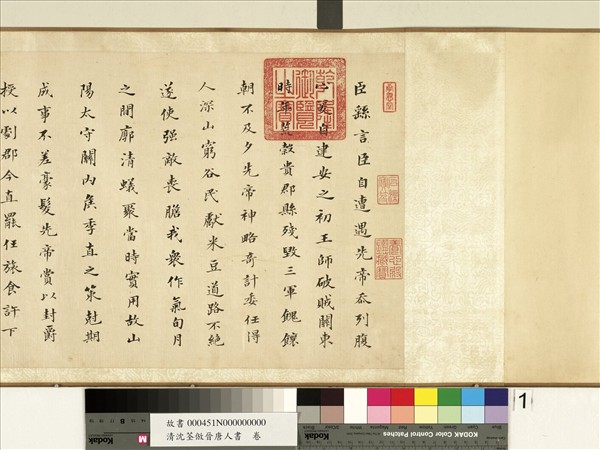 臣繇言臣自遭遇先帝忝列腹
心爰自建安之初王師破賊關東
時年荒穀貴郡縣殘毀三軍餽饟
朝不及夕先帝神略奇計委任得
人深山窮谷民獻米豆道路不絕
遂使强敵喪膽我衆作氣旬月
之間廓清蟻聚當時實用故山
陽太守關內侯季直之策尅期
成事不差豪髮先帝賞以封爵
授以劇郡今直罷任旅食許下
乾隆御覽之寶
故書 000451N000000000
清沈荃倣晉唐人書 卷
Kodak
M
KODAK Color Control Patches
Kodak
1